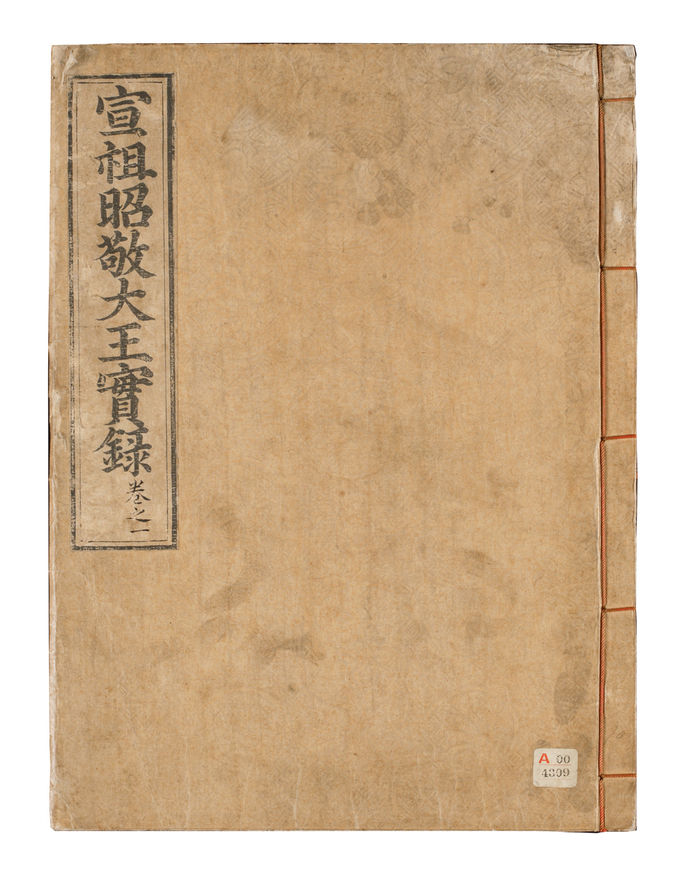 宣祖昭敬大王實錄 卷之一
A 00
4809